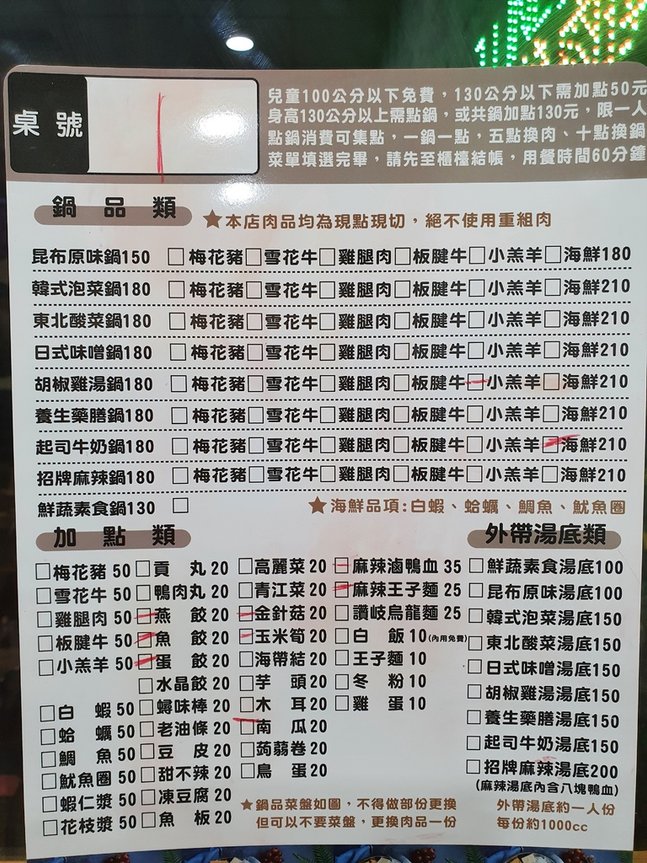 桌號
兒童100公分以下免費，130公分以下需加點50元
身高130公分以上需點鍋，或共鍋加點130元，限一人
點鍋消費可集點，一鍋一點，五點換肉、十點換鍋
菜單填選完畢，請先至櫃檯結帳，用餐時間60分鐘
鍋品類 ★本店肉品均為現點現切，絕不使用重組肉
昆布原味鍋150 □梅花豬□雪花牛□雞腿肉□板腱牛□小羔羊□海鮮180
韓式泡菜鍋180 □梅花豬□雪花牛□雞腿肉□板腱牛□小羔羊□海鮮210
東北酸菜鍋180 □梅花豬□雪花牛□雞腿肉□板腱牛□小羔羊□海鮮210
日式味噌鍋180 □梅花豬□雪花牛□雞腿肉□板腱牛□小羔羊□海鮮210
胡椒雞湯鍋180 □梅花豬□雪花牛□雞腿肉□板腱牛□小羔羊□海鮮210
養生藥膳鍋180 □梅花豬□雪花牛□雞腿肉□板腱牛□小羔羊□海鮮210
起司牛奶鍋180 □梅花豬□雪花牛□雞腿肉□板腱牛□小羔羊□海鮮210
招牌麻辣鍋180 □梅花豬□雪花牛□雞腿肉□板腱牛□小羔羊□海鮮210
鮮蔬素食鍋130 □ ★海鮮品項:白蝦、蛤蠣、鯛魚、魷魚圈
加點類
□梅花豬 50
□雪花牛 50
□雞腿肉 50
□板腱牛 50
□小羔羊 50
□白蝦 50
□蛤蠣 50
□鯛魚 50
□魷魚圈 50
□蝦仁漿 50
□花枝漿 50
□貢丸 20
□鴨肉丸 20
□燕餃 20
□魚餃 20
□蛋餃 20
□水晶餃 20
□蟳味棒 20
□老油條 20
□豆皮 20
□甜不辣 20
□凍豆腐 20
□魚板 20
□高麗菜 20
□青江菜 20
□金針菇 20
□玉米筍 20
□海帶結 20
□芋頭 20
□木耳 20
□南瓜 20
□蒟蒻卷 20
□鳥蛋 20
□麻辣滷鴨血 35
□麻辣王子麵 25
□讚岐烏龍麵 25
□白飯 10(內用免費)
□王子麵 10
□冬粉 10
□雞蛋 10
★鍋品菜盤如圖，不得做部份更換
但可以不要菜盤，更換肉品一份
外帶湯底類
□鮮蔬素食湯底100
□昆布原味湯底100
□韓式泡菜湯底150
□東北酸菜湯底150
□日式味噌湯底150
□胡椒雞湯湯底150
□養生藥膳湯底150
□起司牛奶湯底150
□招牌麻辣湯底200
(麻辣湯底內含八塊鴨血)
外帶湯底約一人份
每份約1000cc